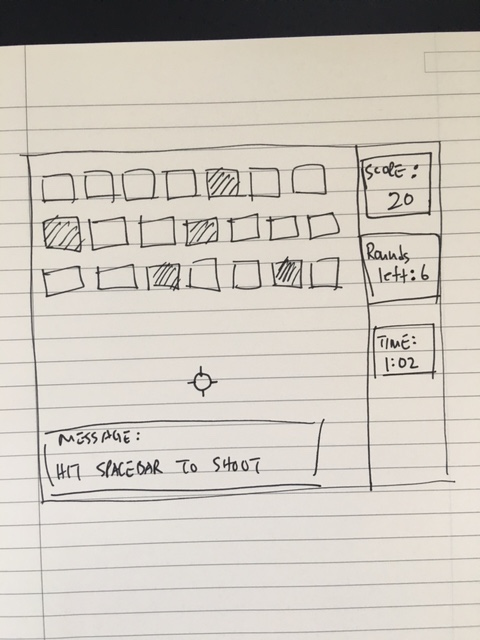 SCORE:
20
Rounds
left: 6
TIME:
1:02
MESSAGE:
HIT SPACEBAR TO SHOOT